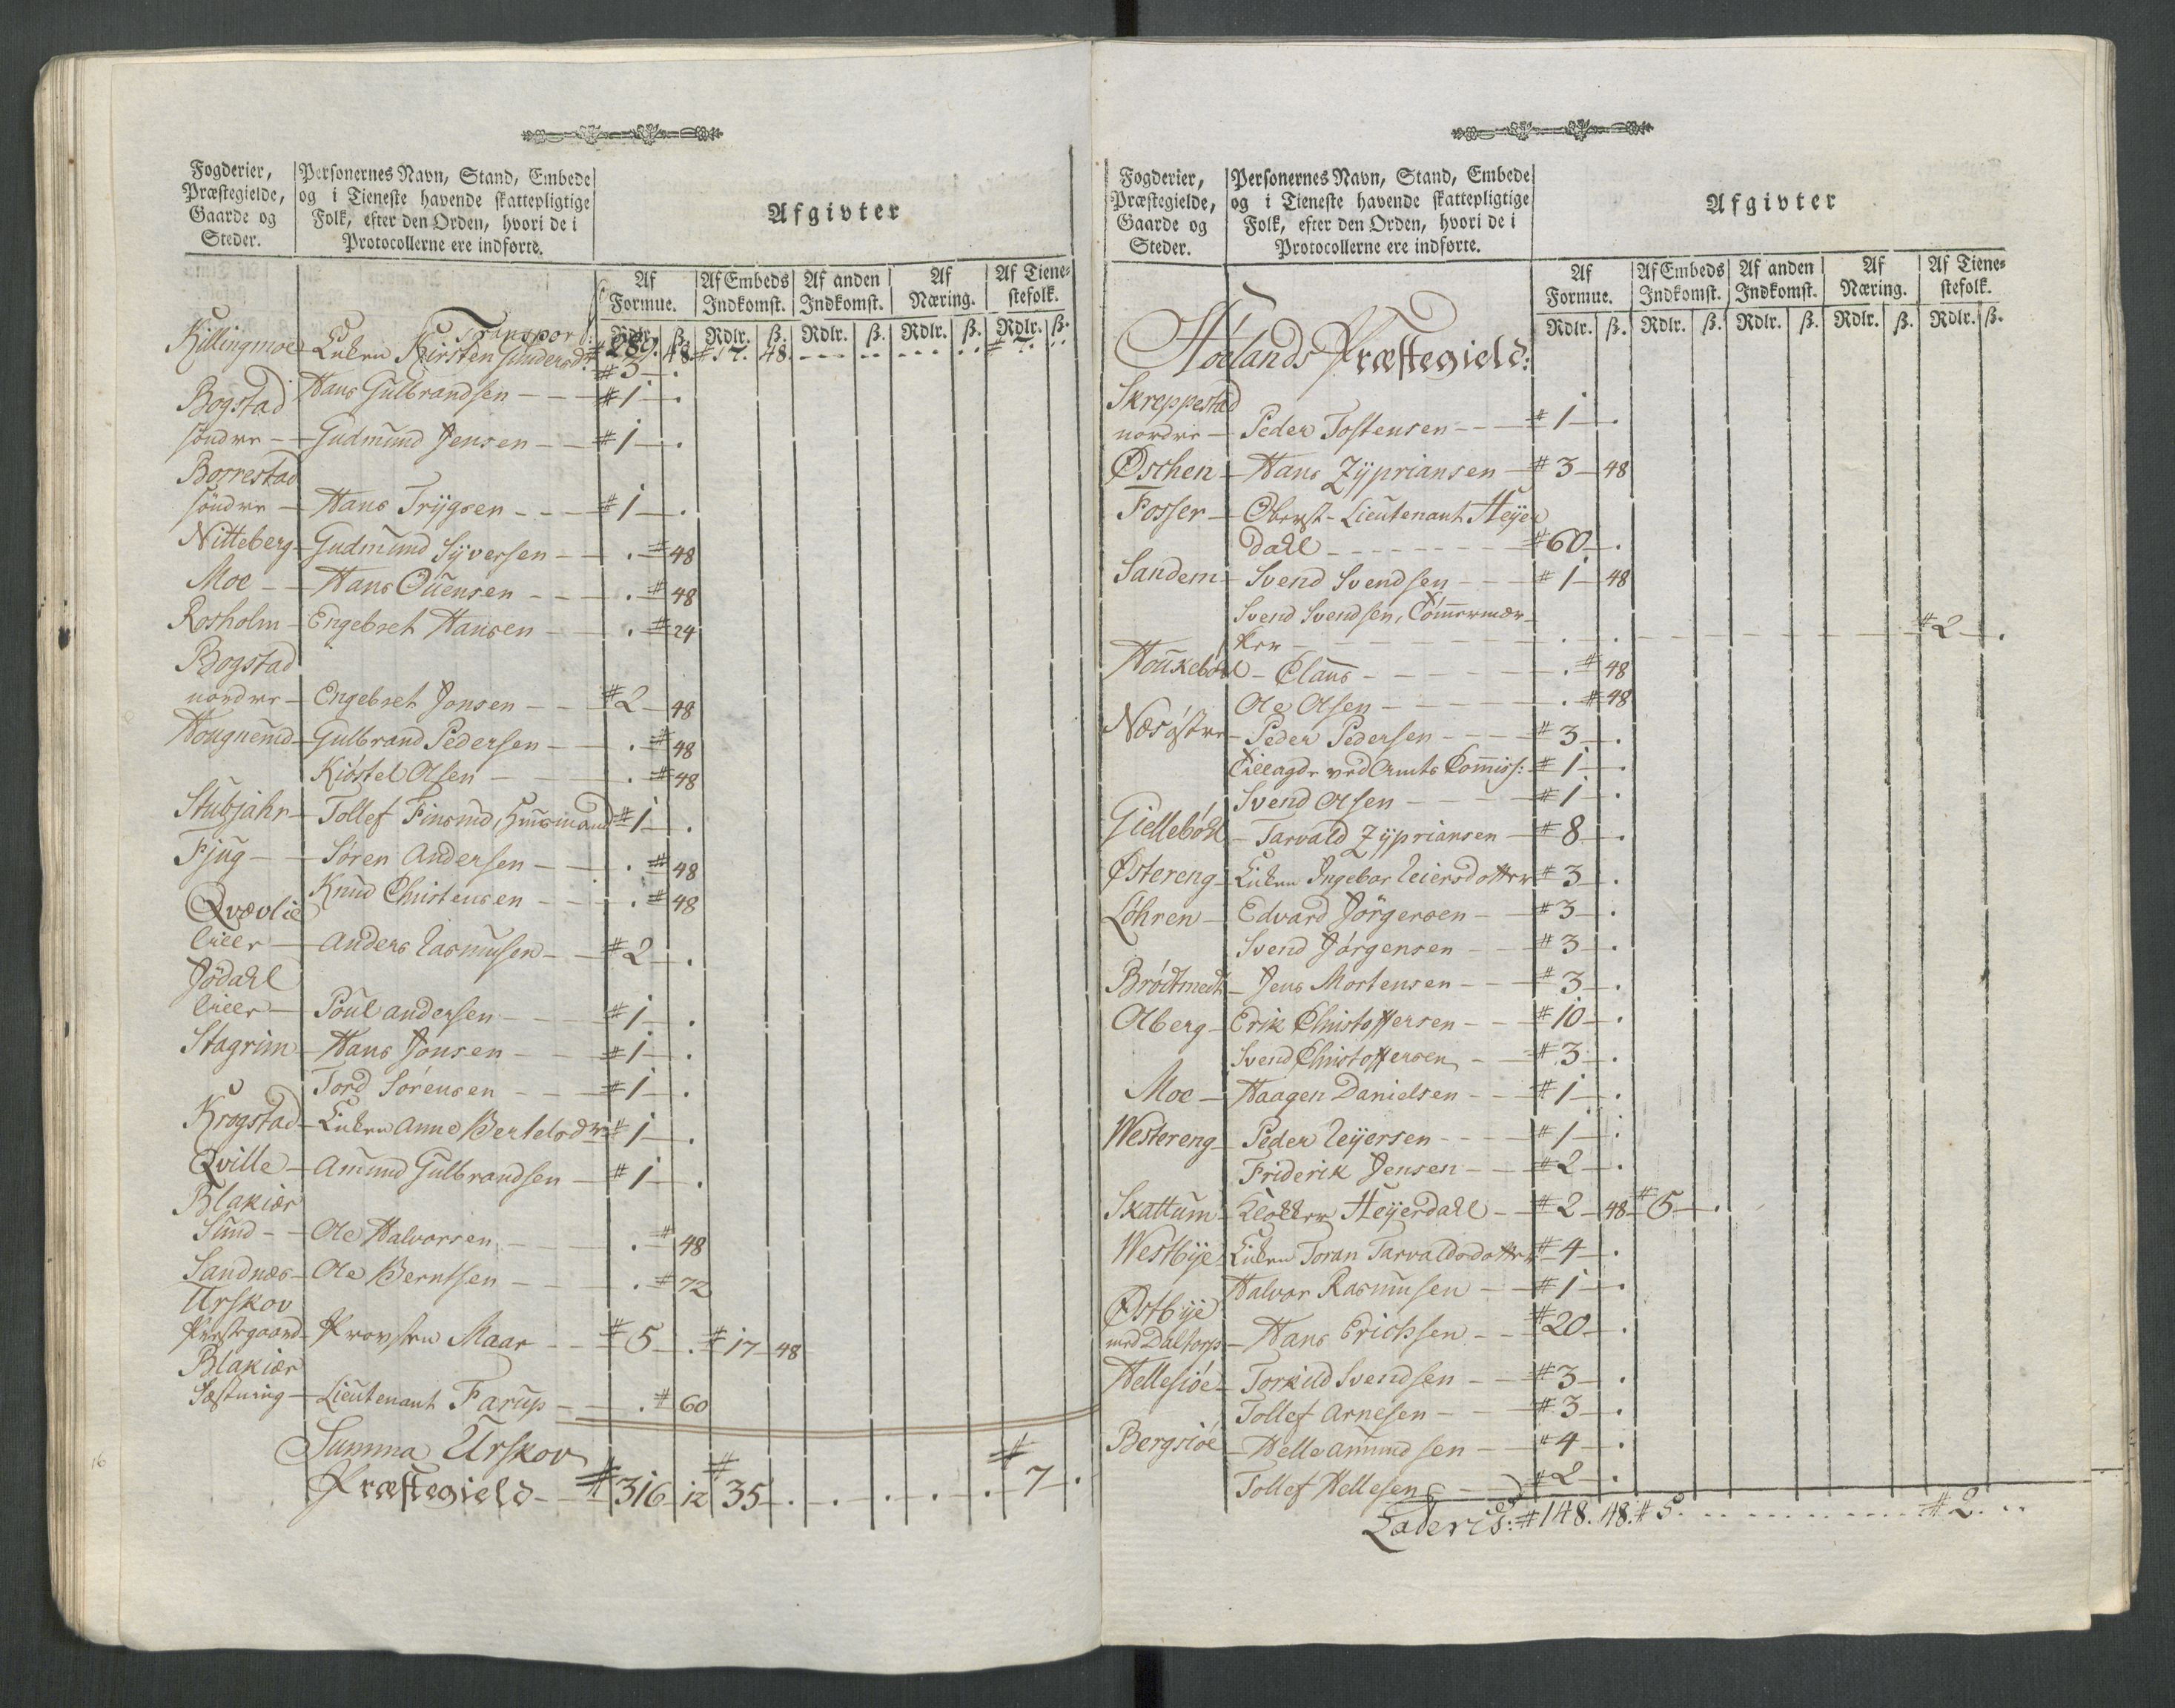 Fogderier,
Præstegielde,
Gaarde og
Steder.
Personernes Navn, Stand, Embede
og i Tieneste havende skattepligtige
Folk, efter den Orden, hvori de i
Protocollerne ere indførte.
Afgivter
Af Formue. Af Embeds Indkomst. Af anden Indkomst. Af Næring. Af Tienestefolk.
Rdlr. ß. Rdlr. ß. Rdlr. ß. Rdlr. ß. Rdlr. ß.
Transport 48 #17. 48. #7.
Killingmoe Enken Kirsten #3
Hans Gulbrandsen #1
Bogstad
søndre Gudmund Jensen #1
Borrestad
søndre Hans Trygsen #1
Nitteberg Gudmund Syversen #48
Moe Hans Ouensen #48
Rosholm Engebret Hansen #24
Bogstad
nordre Engebret Jonsen #2 48
Hougnemd Gulbrand Pedersen #48
Kiøstel Olsen #48
Tollef Finsmd, Huusmand #1
Fjug Søren Andersen #48
Knud Christensen #48
Qvevlie
lille Anders Rasmusen #2
Jødahl
lille Poul Andersen #1
Stagrim Hans Jonsen #1
Tord Sørensen #1
Krogstad Enken Anne Bertelsdtr #1
Qville Amund Gulbrandsen #1
Blakiær
Sund Ole Halvorsen #48
Sandnæs Ole Berntsen #72
Urskov
Præstegaard Provsten Maar #5 #17 48
Blakiær
Fæstning Lieutenant Farup #60
Summa Urskov
Præstegield #316 12 #35 #7
Fogderier,
Præstegielde,
Gaarde og
Steder.
Personernes Navn, Stand, Embede
og i Tieneste havende skattepligtige
Folk, efter den Orden, hvori de i
Protocollerne ere indførte.
Afgivter
Af Formue. Af Embeds Indkomst. Af anden Indkomst. Af Næring. Af Tienestefolk.
Rdlr. ß. Rdlr. ß. Rdlr. ß. Rdlr. ß. Rdlr. ß.
Høelands Præstegield:
Skreppestad
nordre Peder Tostensen #1
Øschen Hans Zypriansen #3 48
Fosser Oberst-Lieutenant Heyer
dahl #60
Sandem Svend Svendsen #1 48
Svend Svendsen, Tømmermær
ker #2
Houkebøhl Claus #48
Ole Olsen #48
Næs østre Peder Pedersen #3
Tillagde ved Amts Commiss: #1
Svend Olsen #1
Giellebøhl Tarvald Zypriansen #8
Østereng Enken Ingebor Reiersdotter #3
Løhren Edvard Jørgensen #3
Svend Jørgensen #3
Brødtmedt Jens Mortensen #3
Olberg Erik Christoffersen #10
Svend Christoffersen #3
Moe Haagen Danielsen #1
Westereng Peder Reyersen #1
Friderik Jensen #2
Skattum Klokker Heyerdahl #2 48 #5
Westbye Enken Joran Tarvaldsdotter #4
Halvor Rasmusen #1
Østbye
med Daltorp Hans Erichsen #20
Hellesiøe Torkild Svendsen #3
Tollef Arnesen #3
Bergsiøe Helle Amundsen #4
Tollef Hellesen #2
Lateris: #148. 48. #5. #2.